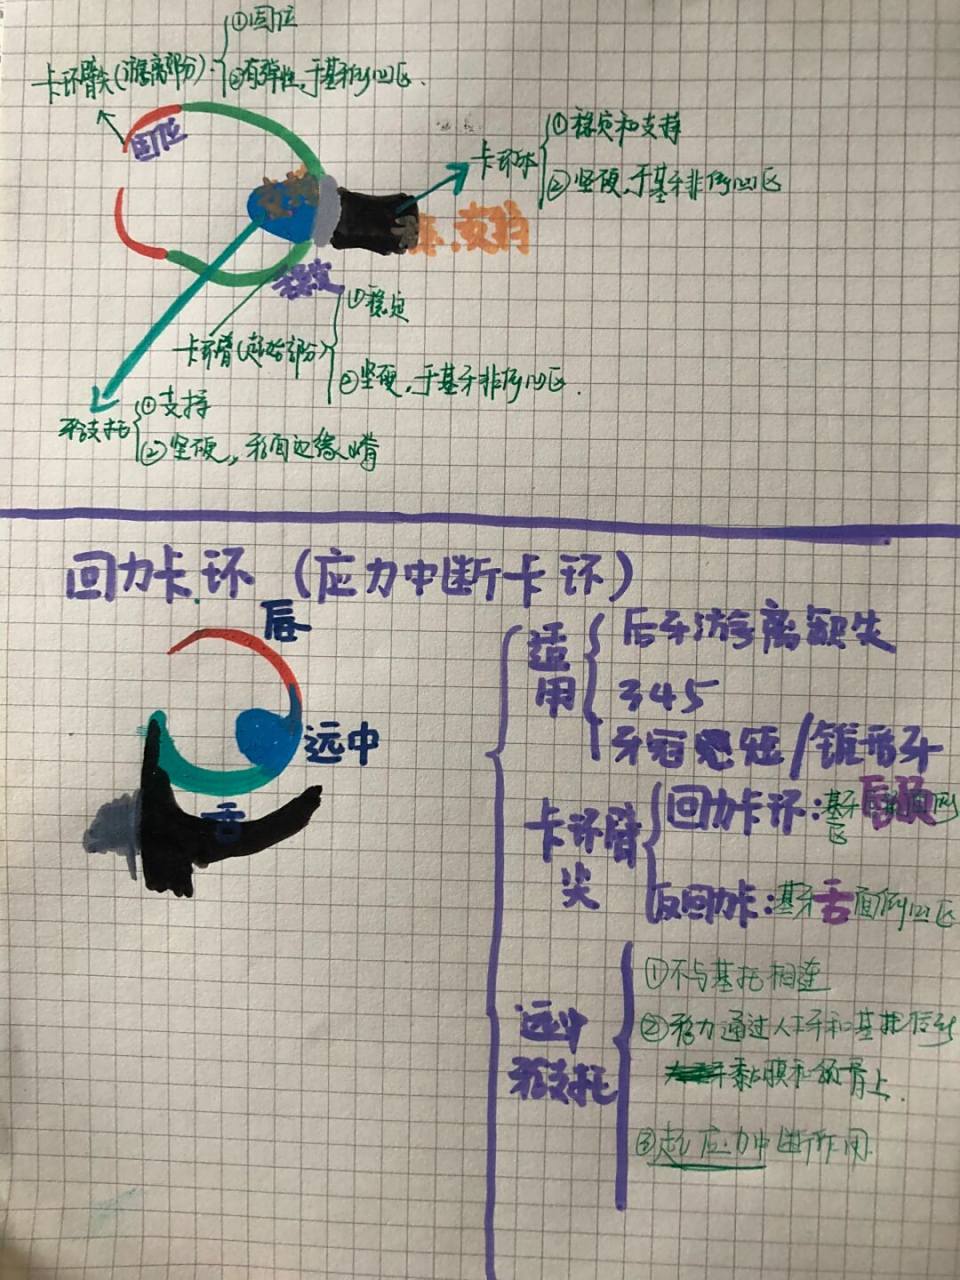 ①固位
卡环臂尖(游离部分)
②有弹性,于基牙倒凹区.
固位
①稳定和支持
卡环体
②坚硬,于基牙非倒凹区
支持
稳定
①稳定
卡环臂(起始部分)
②坚硬,于基牙非倒凹区.
①支持
𬌗支托
②坚硬,𬌗面边缘嵴
回力卡环(应力中断卡环)
唇
远中
舌
适用
后牙游离缺失
345
牙冠短/锥形牙
卡环臂尖
回力卡环:基牙唇颊面倒凹区
反回力卡:基牙舌面倒凹区
远中𬌗支托
①不与基托相连
②𬌗力通过人工牙和基托传到
黏膜和颌骨上.
③起应力中断作用